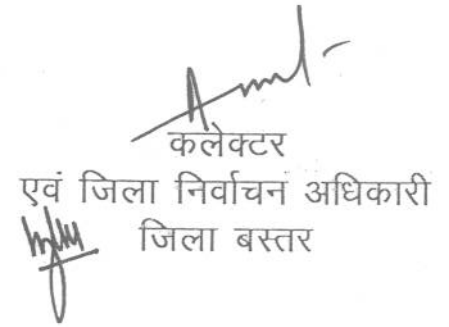 कलेक्टर
एवं जिला निर्वाचन अधिकारी
जिला बस्तर